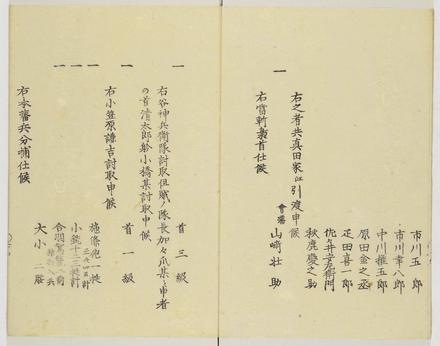 市川五郎
市川幸八郎
中川権五郎
原田金之丞
疋田喜一郎
佐々井幸右衛門
秋鹿慶之助
右之者共真田家江引渡申候
會藩
山崎壮助
一
右當斬梟首仕候
一
首三級
右谷神兵衛隊討取但賊ノ隊長加々爪某ト申者
の首清太郎於小橋某討取申候
一
首一級
右小笠原謙吉討取申候
一
施條砲一挺
一
小銃十三挺計
一
合羽駕籠一荷
大小二腰
右本藩兵分捕仕候